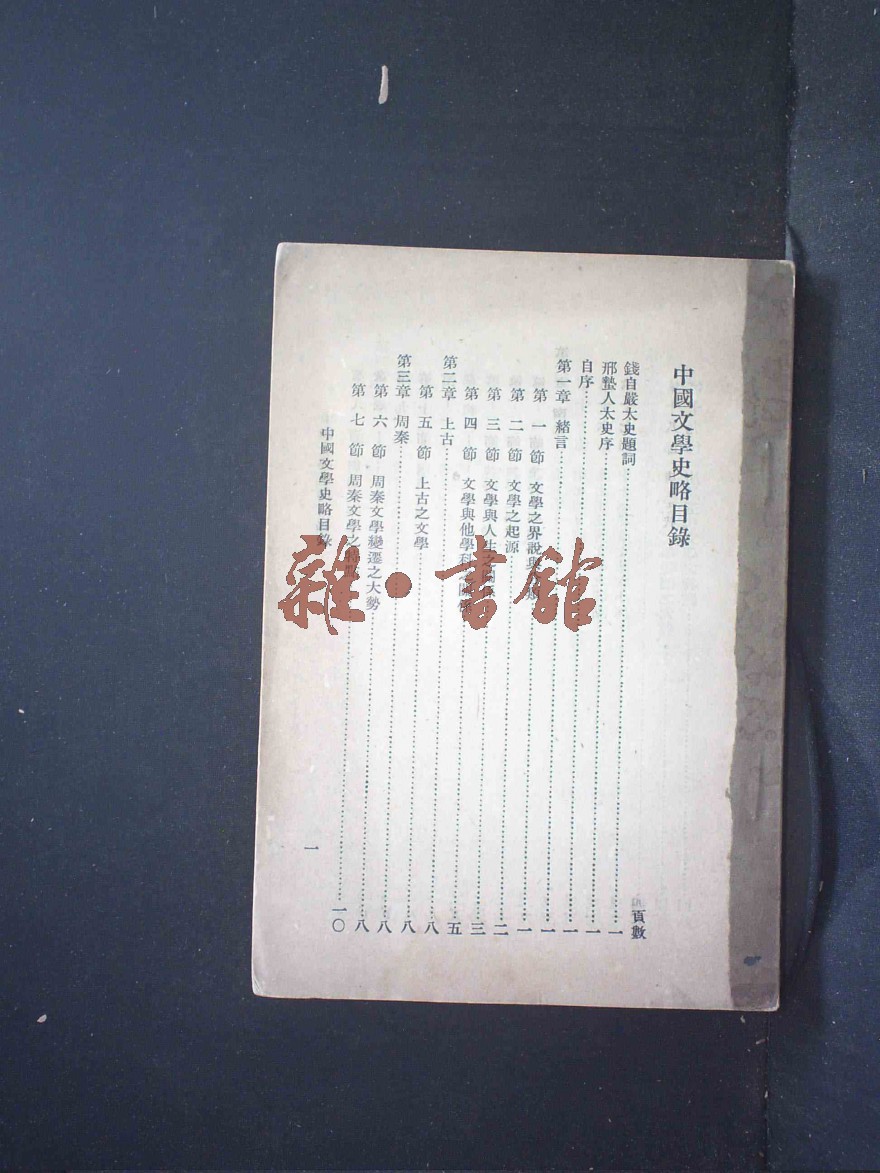 中國文學史略目錄
頁數
錢自嚴太史題詞……一
邢蟄人太史序……一
自序……一
第一章 緒言……一
第一節 文學之界說與……一
第二節 文學之起源……二
第三節 文學與人生之關係……三
第四節 文學與他學科之關係……五
第二章 上古……八
第五節 上古之文學……八
第三章 周秦……八
第六節 周秦文學變遷之大勢……八
第七節 周秦文學之……一〇
中國文學史略目錄
一
雜·書館